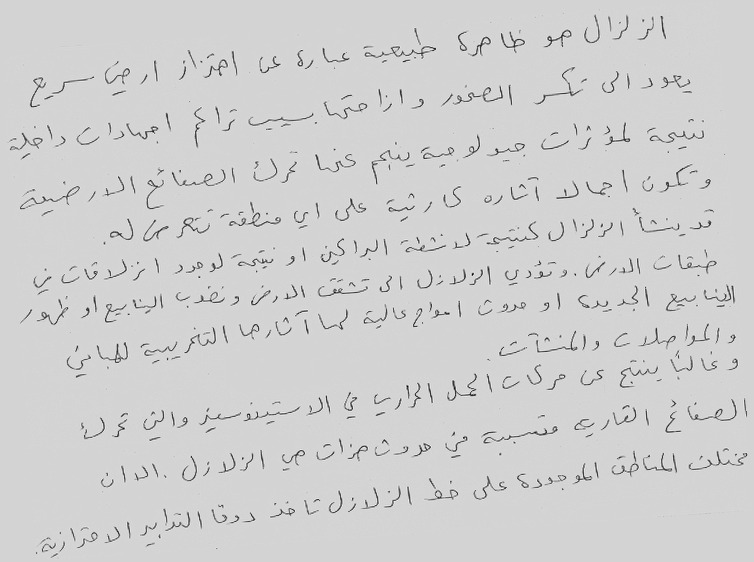 الزلزال هو ظاهرة طبيعية عبارة عن اهتزاز ارضي سريع
يعود الى تكسر الصخور وازاحتها بسبب تراكم اجهادات داخلية
نتيجة لمؤثرات جيولوجية ينجم عنها تحرك الصفائح الارضية
وتكون اجمالا آثاره كارثية على اي منطقة تتعرض له.
قد ينشأ الزلزال كنتيجة لانشطة البراكين او نتيجة لوجود انزلاقات في
طبقات الارض. وتؤدي الزلازل الى تشقق الارض ونضوب الينابيع او ظهور
الينابيع الجديدة او حدوث امواج عالية لها آثارها التخريبية للمباني
والمواصلات والمنشآت.
وغالبا ينتج عن حركات الحمل الحراري في الاستينوسفير والتي تحرك
الصفائح القارية متسببة في حدوث هزات هي الزلازل. الا ان
مختلف المناطق الموجودة على خط الزلازل تاخذ دوما التدابير الاحترازية.